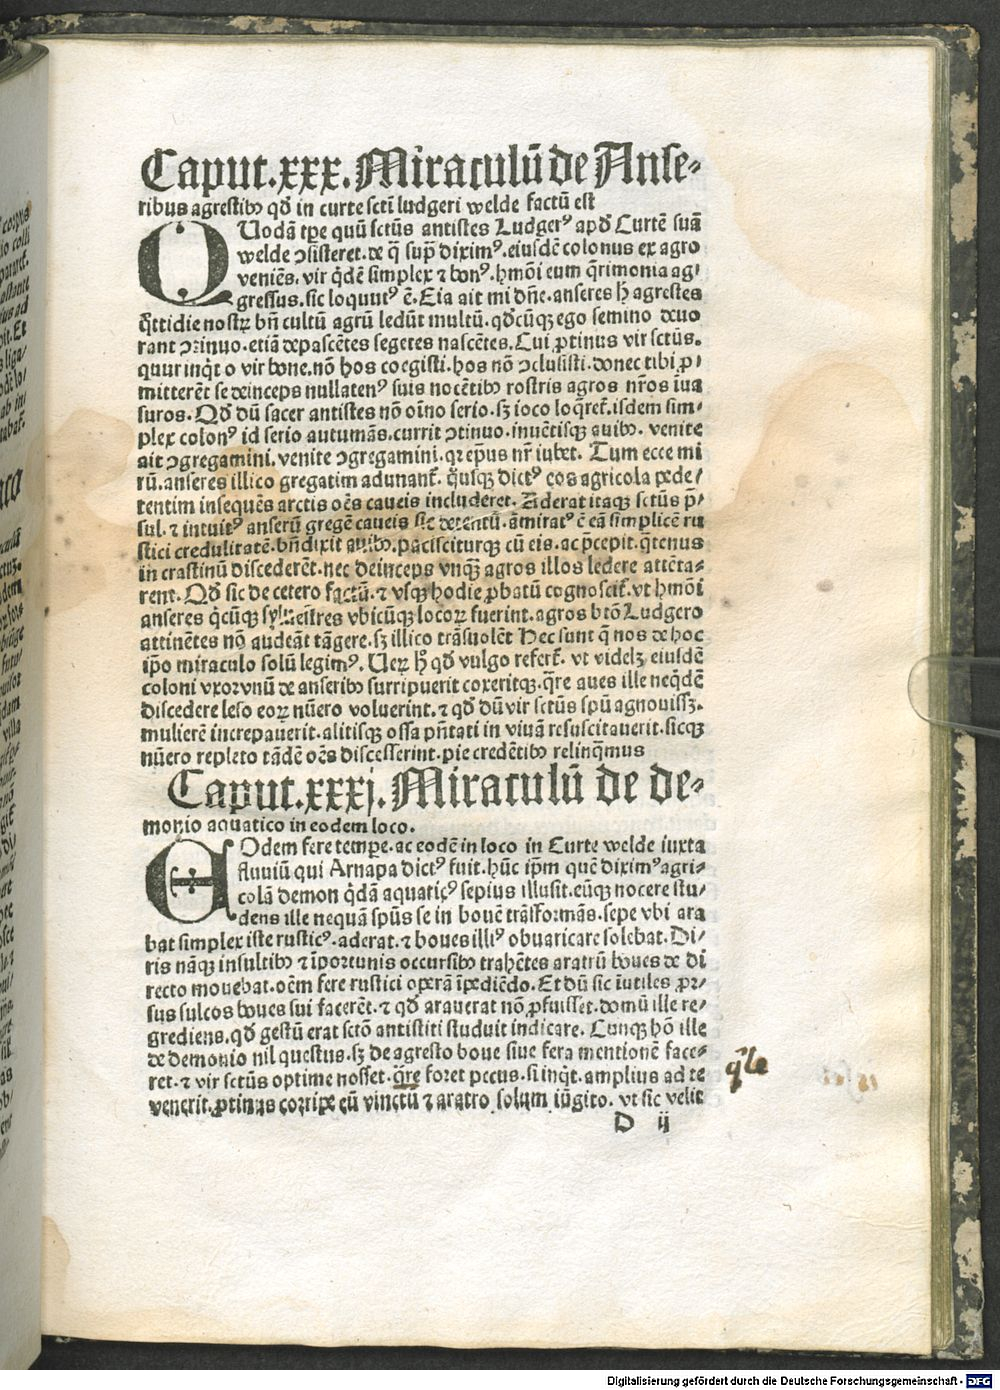 Caput.xxx. Miraculū de Anse⸗
ribus agrestibꝰ qđ in curte sc̄ti ludgeri welde factū est
QUodā tp̄e quū sc̄tūs antistes Ludgerꝰ apđ Curtē suā
welde ↄsisteret. de q̄ sup̄ diximꝰ. eiusdē colonus ex agro
veniēs. vir q̇dē simplex ⁊ bonꝰ. hm̄oi eum q̄rimonia ag/
gressus. sic loquutꝰ ē. Eia ait mi dn̄e. anseres hi agrestes
q̊ttidie nostꝝ bn̄ cultū agrū ledūt multū. qđcūqꝫ ego semino deuo
rant ↄtinuo. etiā depascētes segetes nascētes. Cui ꝓtinus vir sctūs.
quur inq̇t o vir bone. nō hos coegisti. hos nō ↄclusisti. donec tibi ꝓ/
mitterēt se deinceps nullatenꝰ suis nocētibꝰ rostris agros nr̄os īua
suros. Qđ dū sacer antistes nō oīno serio. sꝫ ioco loq̄ret᷑. isdem sim⸗
plex colonꝰ id serio autumās. currit ↄtinuo. inuētisqꝫ auibꝰ. venite
ait ↄgregamini. venite ↄgregamini. qꝛ ep̄us nr̄ iubet. Tum ecce mi
rū. anseres illico gregatim adunant᷑. q̊usqꝫ dictꝰ eos agricola pede/
tentim insequēs arctis oēs caueis includeret. Aderat itaqꝫ sctūs p̄/
sul. ⁊ intuitꝰ anserū gregē caueis sic detentū. āmiratꝰ ē eā simplicē ru
stici credulitatē. bn̄dixit auibꝰ. pacisciturqꝫ cū eis. ac p̄cepit. q̊tenus
in crastinū discederēt. nec deinceps vnq̄ agros illos ledere attēta⸗
rent. Qđ sic de cetero factū. ⁊ vsqꝫ hodie ꝓbatū cognoscit᷑. vt hm̄oi
anseres q̇cūqꝫ syluestres vbicūqꝫ locoꝝ fuerint. agros btō Ludgero
attinētes nō audeāt tāgere. sꝫ illico trāsuolēt Hec sunt q̄ nos de hoc
ip̄o miraculo solū legimꝰ. Ueꝝ h̄ qđ vulgo refert᷑. vt videlꝫ eiusdē
coloni vxor vnū de anseribꝰ surripuerit coxeritqꝫ. q̄re aues ille neq̄dē
discedere leso eoꝝ nūero voluerint. ⁊ qđ dū vir sctūs spū agnouissꝫ.
mulierē increpauerit. alitisqꝫ ossa pn̄tati in viuā resuscitauerit. sicqꝫ
nūero repleto tādē oēs discesserint. pie credētibꝰ relinq̄mus
Caput.xxxj. Miraculū de de⸗
monio aquatico in eodem loco.
EOdem fere tempꝛe. ac eodē in loco in Curte welde iuxta
fluuiū qui Arnapa dictꝰ fuit. hūc ip̄m quē diximꝰ agri⸗
colā demon q̇dā aquaticꝰ sepius illusit. eūqꝫ nocere stu/
dens ille nequā spūs se in bouē trāsformās. sepe vbi ara
bat simplex iste rusticꝰ. aderat. ⁊ boues illiꝰ obuaricare solebat. Di/
ris nāqꝫ insultibꝰ ⁊ īportunis occursibꝰ trahētes aratrū boues de di
recto mouebat. oēm fere rustici operā īpediēdo. Et dū sic īutiles ꝓr⸗
sus sulcos boues sui facerēt. ⁊ qđ arauerat nō ꝓfuisset. domū ille re⸗
grediens. qđ gestū erat sctō antistiti studuit indicare. Cunqꝫ hō ille
de demonio nil questus. sꝫ de agresto boue siue fera mentionē face⸗
ret. ⁊ vir sctūs optime nosset. q̄re foret pecus. si inq̇t. amplius ad te
venerit. ꝓtinus corripe eū vinctū ⁊ aratro solum iūgito. vt sic velit
q̄le
D ij
Digitalisierung gefördert durch die Deutsche Forschungsgemeinschaft - DFG